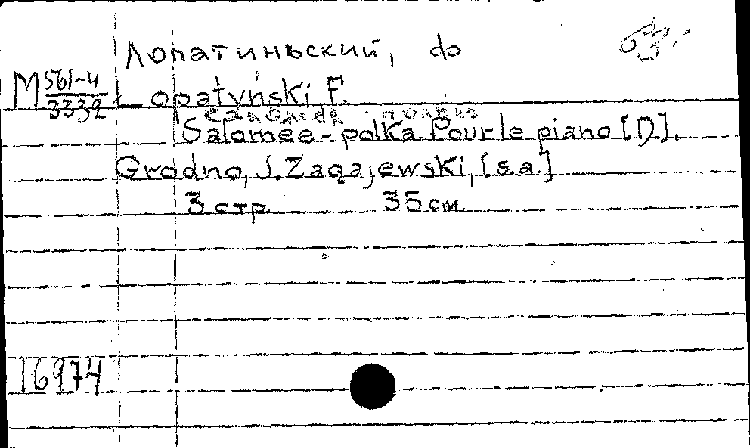 Лопатиньский, до
М 561-4
3332
Lopatyński, F.
Саломея полька
Salomee-polka Pour le piano [D].
Grodno, J. Zagajewski, [s.a.]
3 стр. 35 см
16974